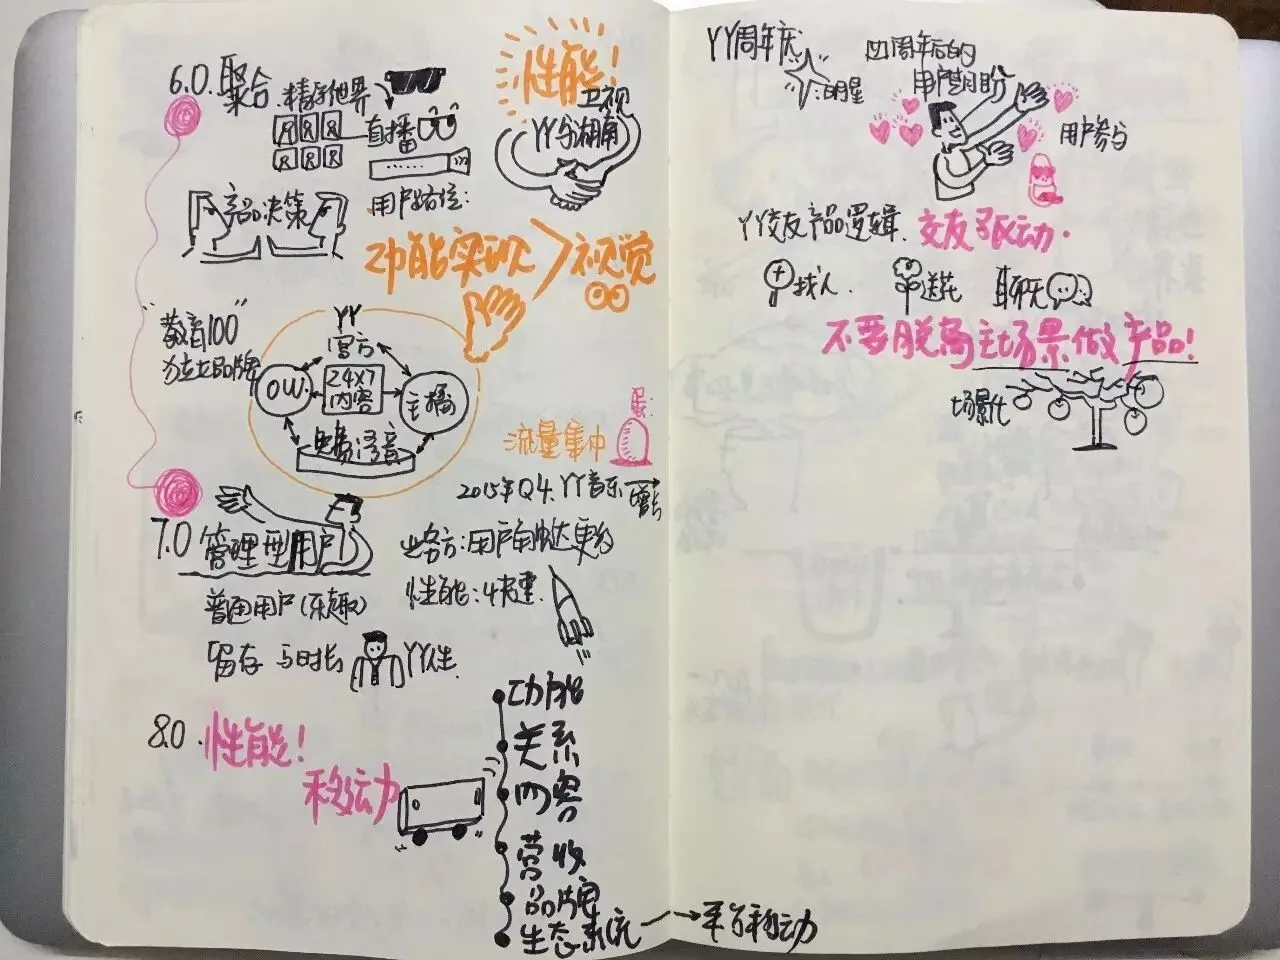 6.0. 聚合
精彩世界
直播
性能!
YY与湖南
卫视
产品决策
用户路位:
功能实现 > 视觉
"教育100"
独立品牌
YY
官方
OW.
24X7
内容
主播
免费语音
流量集中
蛋:
2015年Q4. YY音乐 →
增长
7.0 管理型用户
业务方:用户
性能:快速
普通用户(乐趣)
留存 与时长
YY人生.
8.0. 性能!
移动
功能
关系
内容
营收
品牌
生态系统 → 平台移动
YY周年庆
明星
四周年后的
用户期盼
用户参与
YY交友产品逻辑. 交友驱动.
找人
送花
聊天
不要脱离主场景做产品!
场景化